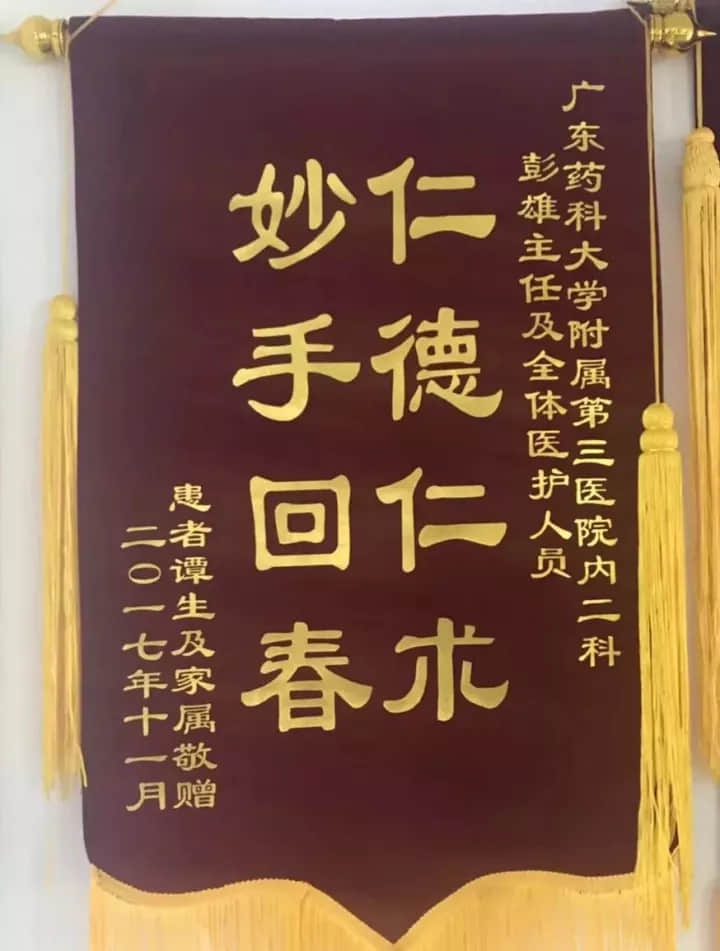 广东药科大学附属第三医院内二科
彭雄主任及全体医护人员
仁德仁术
妙手回春
患者谭生及家属敬赠
二〇一七年十一月